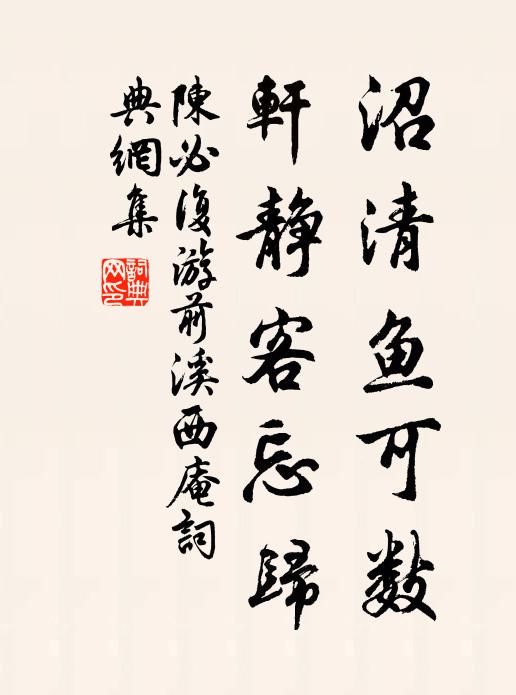 沼清鱼可数
軒静客忘歸
陳必復游前溪西庵詞
典網集
詞典网印